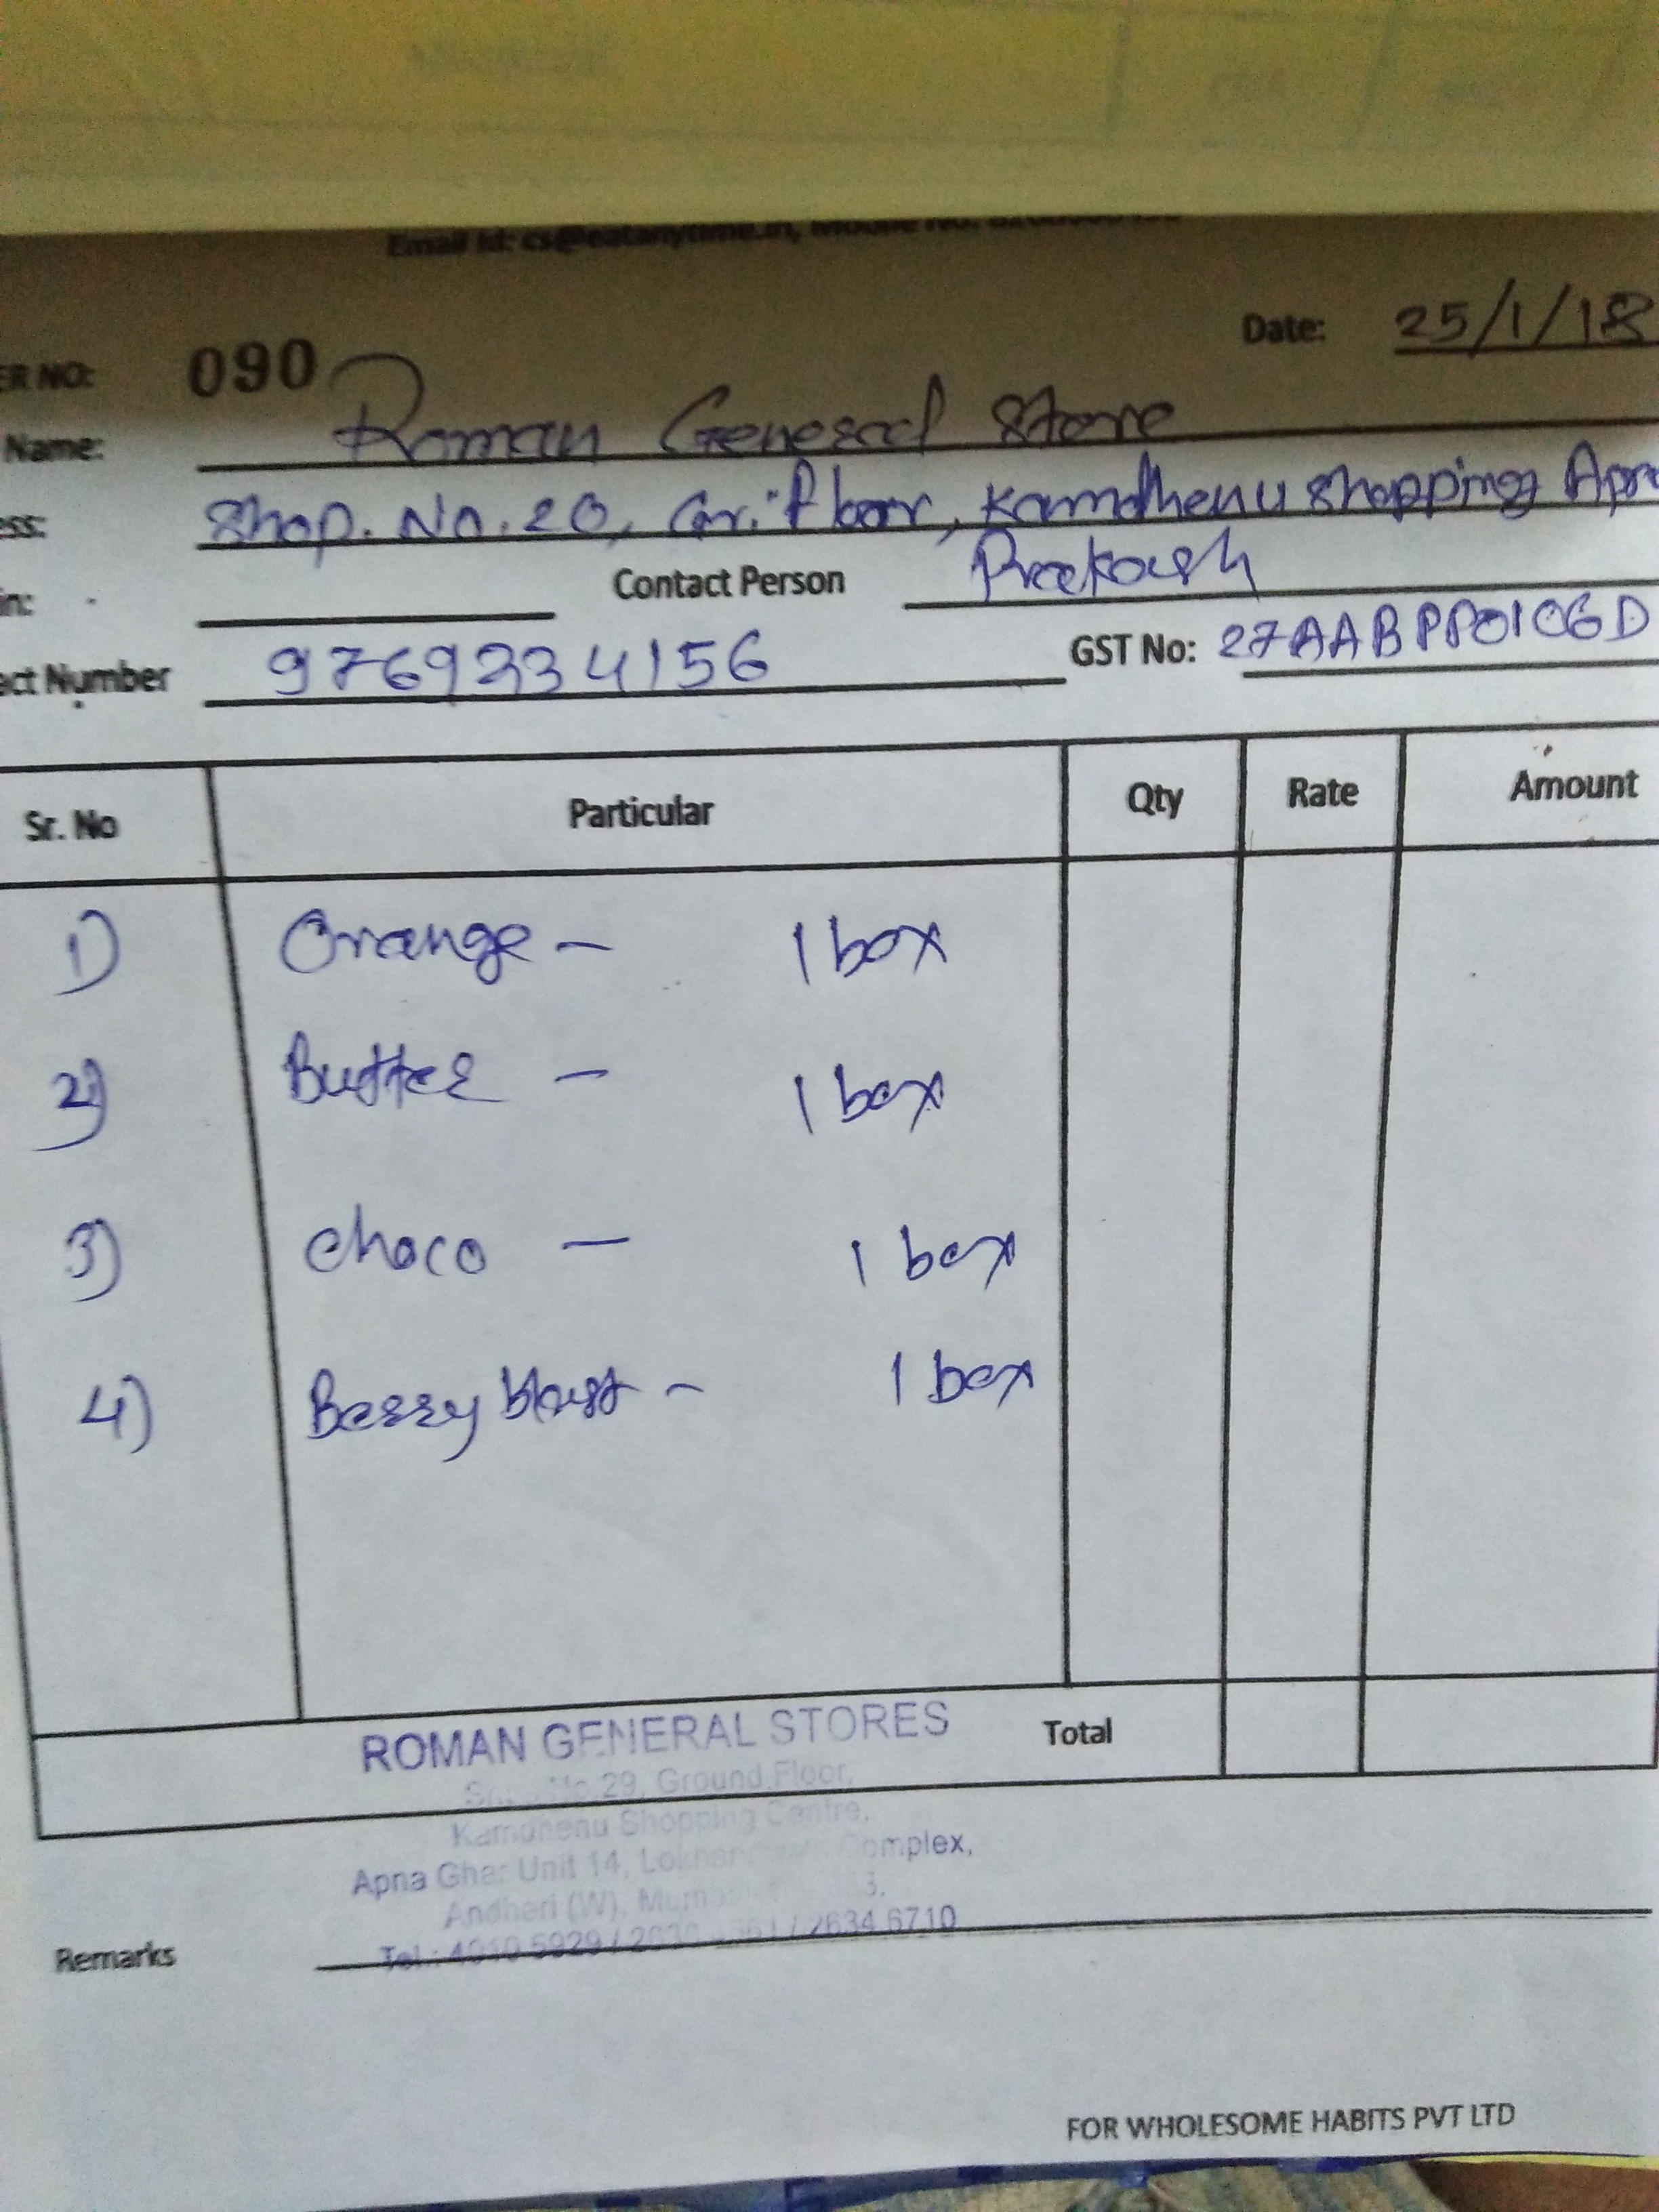 Email Id: cs@eatanytime.in, Mobile No.
Date: 25/1/18
ER NO: 090
Name: Roman General Store
ess: Shop. No. 20, Gr. floor, Kamdhenu Shopping Apn
in: Contact Person Prakash
act Number 9769334156 GST No: 27AABPP0106D
Sr. No Particular Qty Rate Amount
1) Orange - 1 box
2) Butter - 1 box
3) choco - 1 box
4) Berry blast - 1 box
ROMAN GENERAL STORES Total
No.29, Ground Floor,
Kamdhenu Shopping Centre,
Apna Ghar Unit 14, Complex,
Andheri (W),
Remarks Tel.: 4010 5929 / / 2634 6710
FOR WHOLESOME HABITS PVT LTD